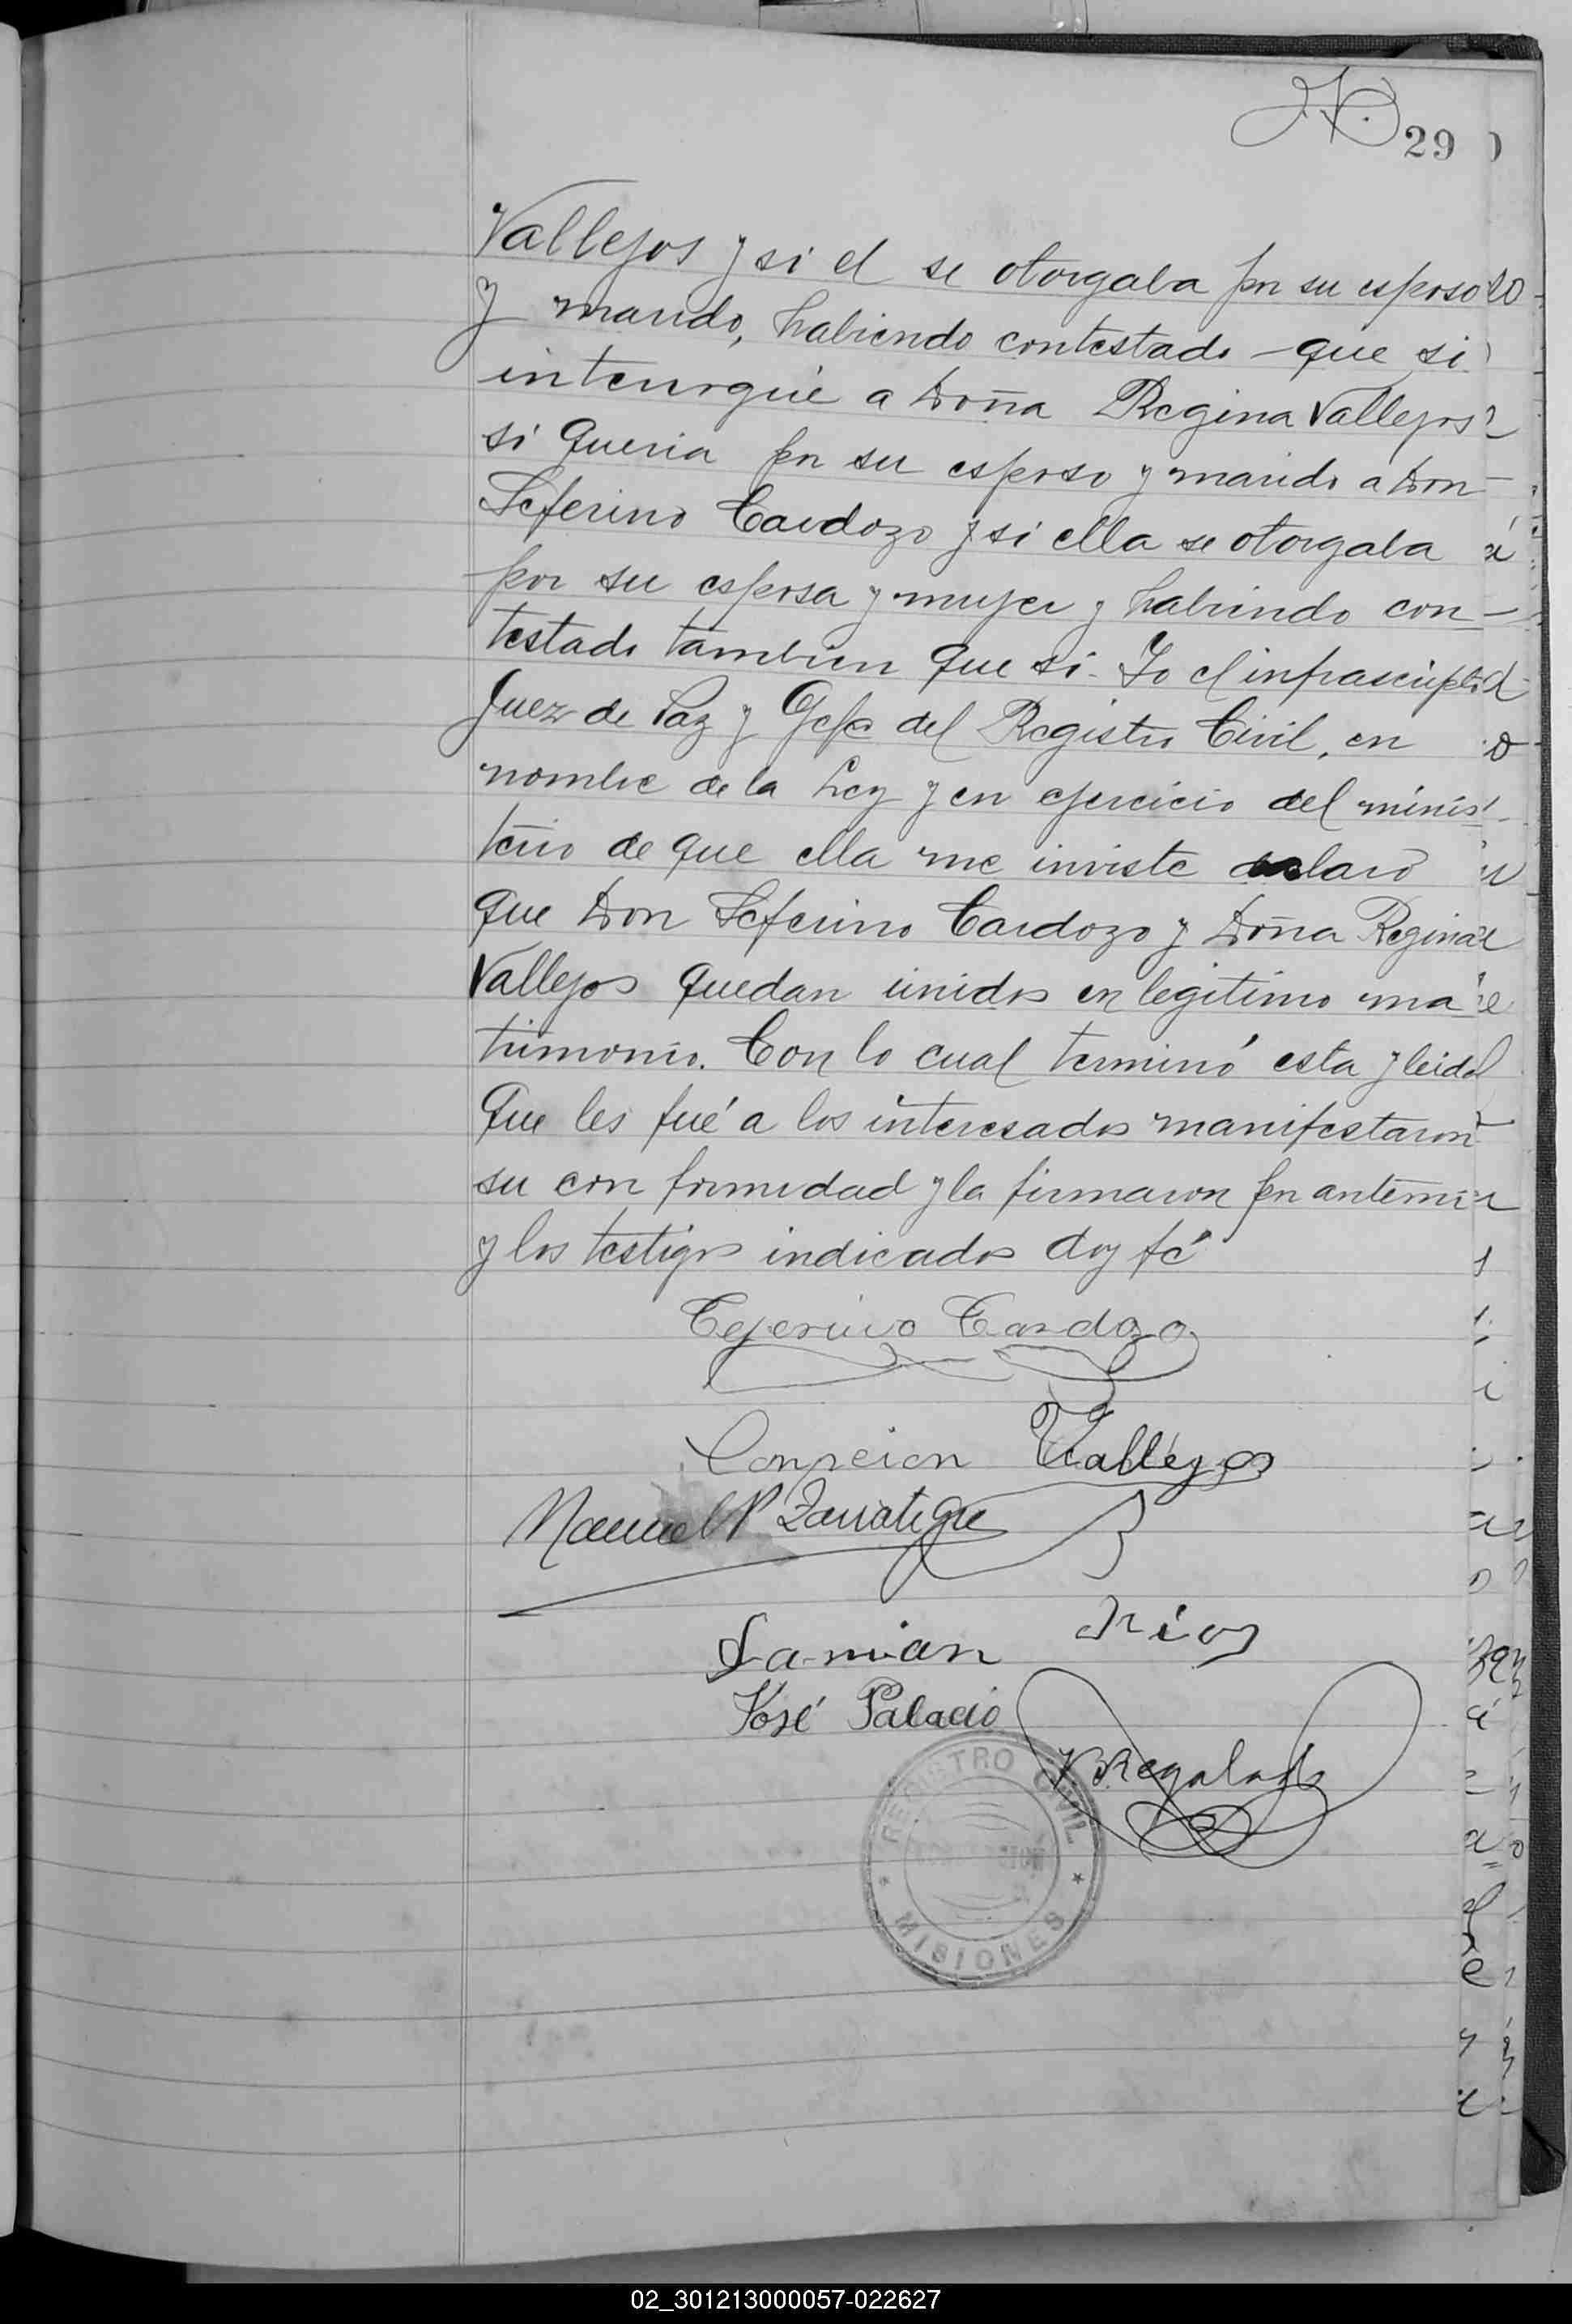 29
Vallejos y si el se otorgaba por su esposo
y marido, habiendo contestado que si
interrogué a Doña Regina Vallejos
si queria por su esposo y marido a Don
Seferino Cardozo y si ella se otorgaba
por su esposa y mujer y habiendo con-
testado tambien que si. Yo el infrascripto
Juez de Paz y Gefe del Registro Civil, en
nombre de la Ley y en ejercicio del minis-
terio de que ella me inviste declaro
que Don Seferino Cardozo y Doña Regina
Vallejos quedan unidos en legitimo ma
trimonio. Con lo cual terminó esta y leida
que les fué a los interesados manifestaron
su conformidad y la firmaron por ante mi
y los testigos indicados doy fé
Ceferino Cardozo
Vallejos
Manuel P
Damian Rios
José Palacio
Regalado
REGISTRO CIVIL
MISIONES
02_301213000057-022627